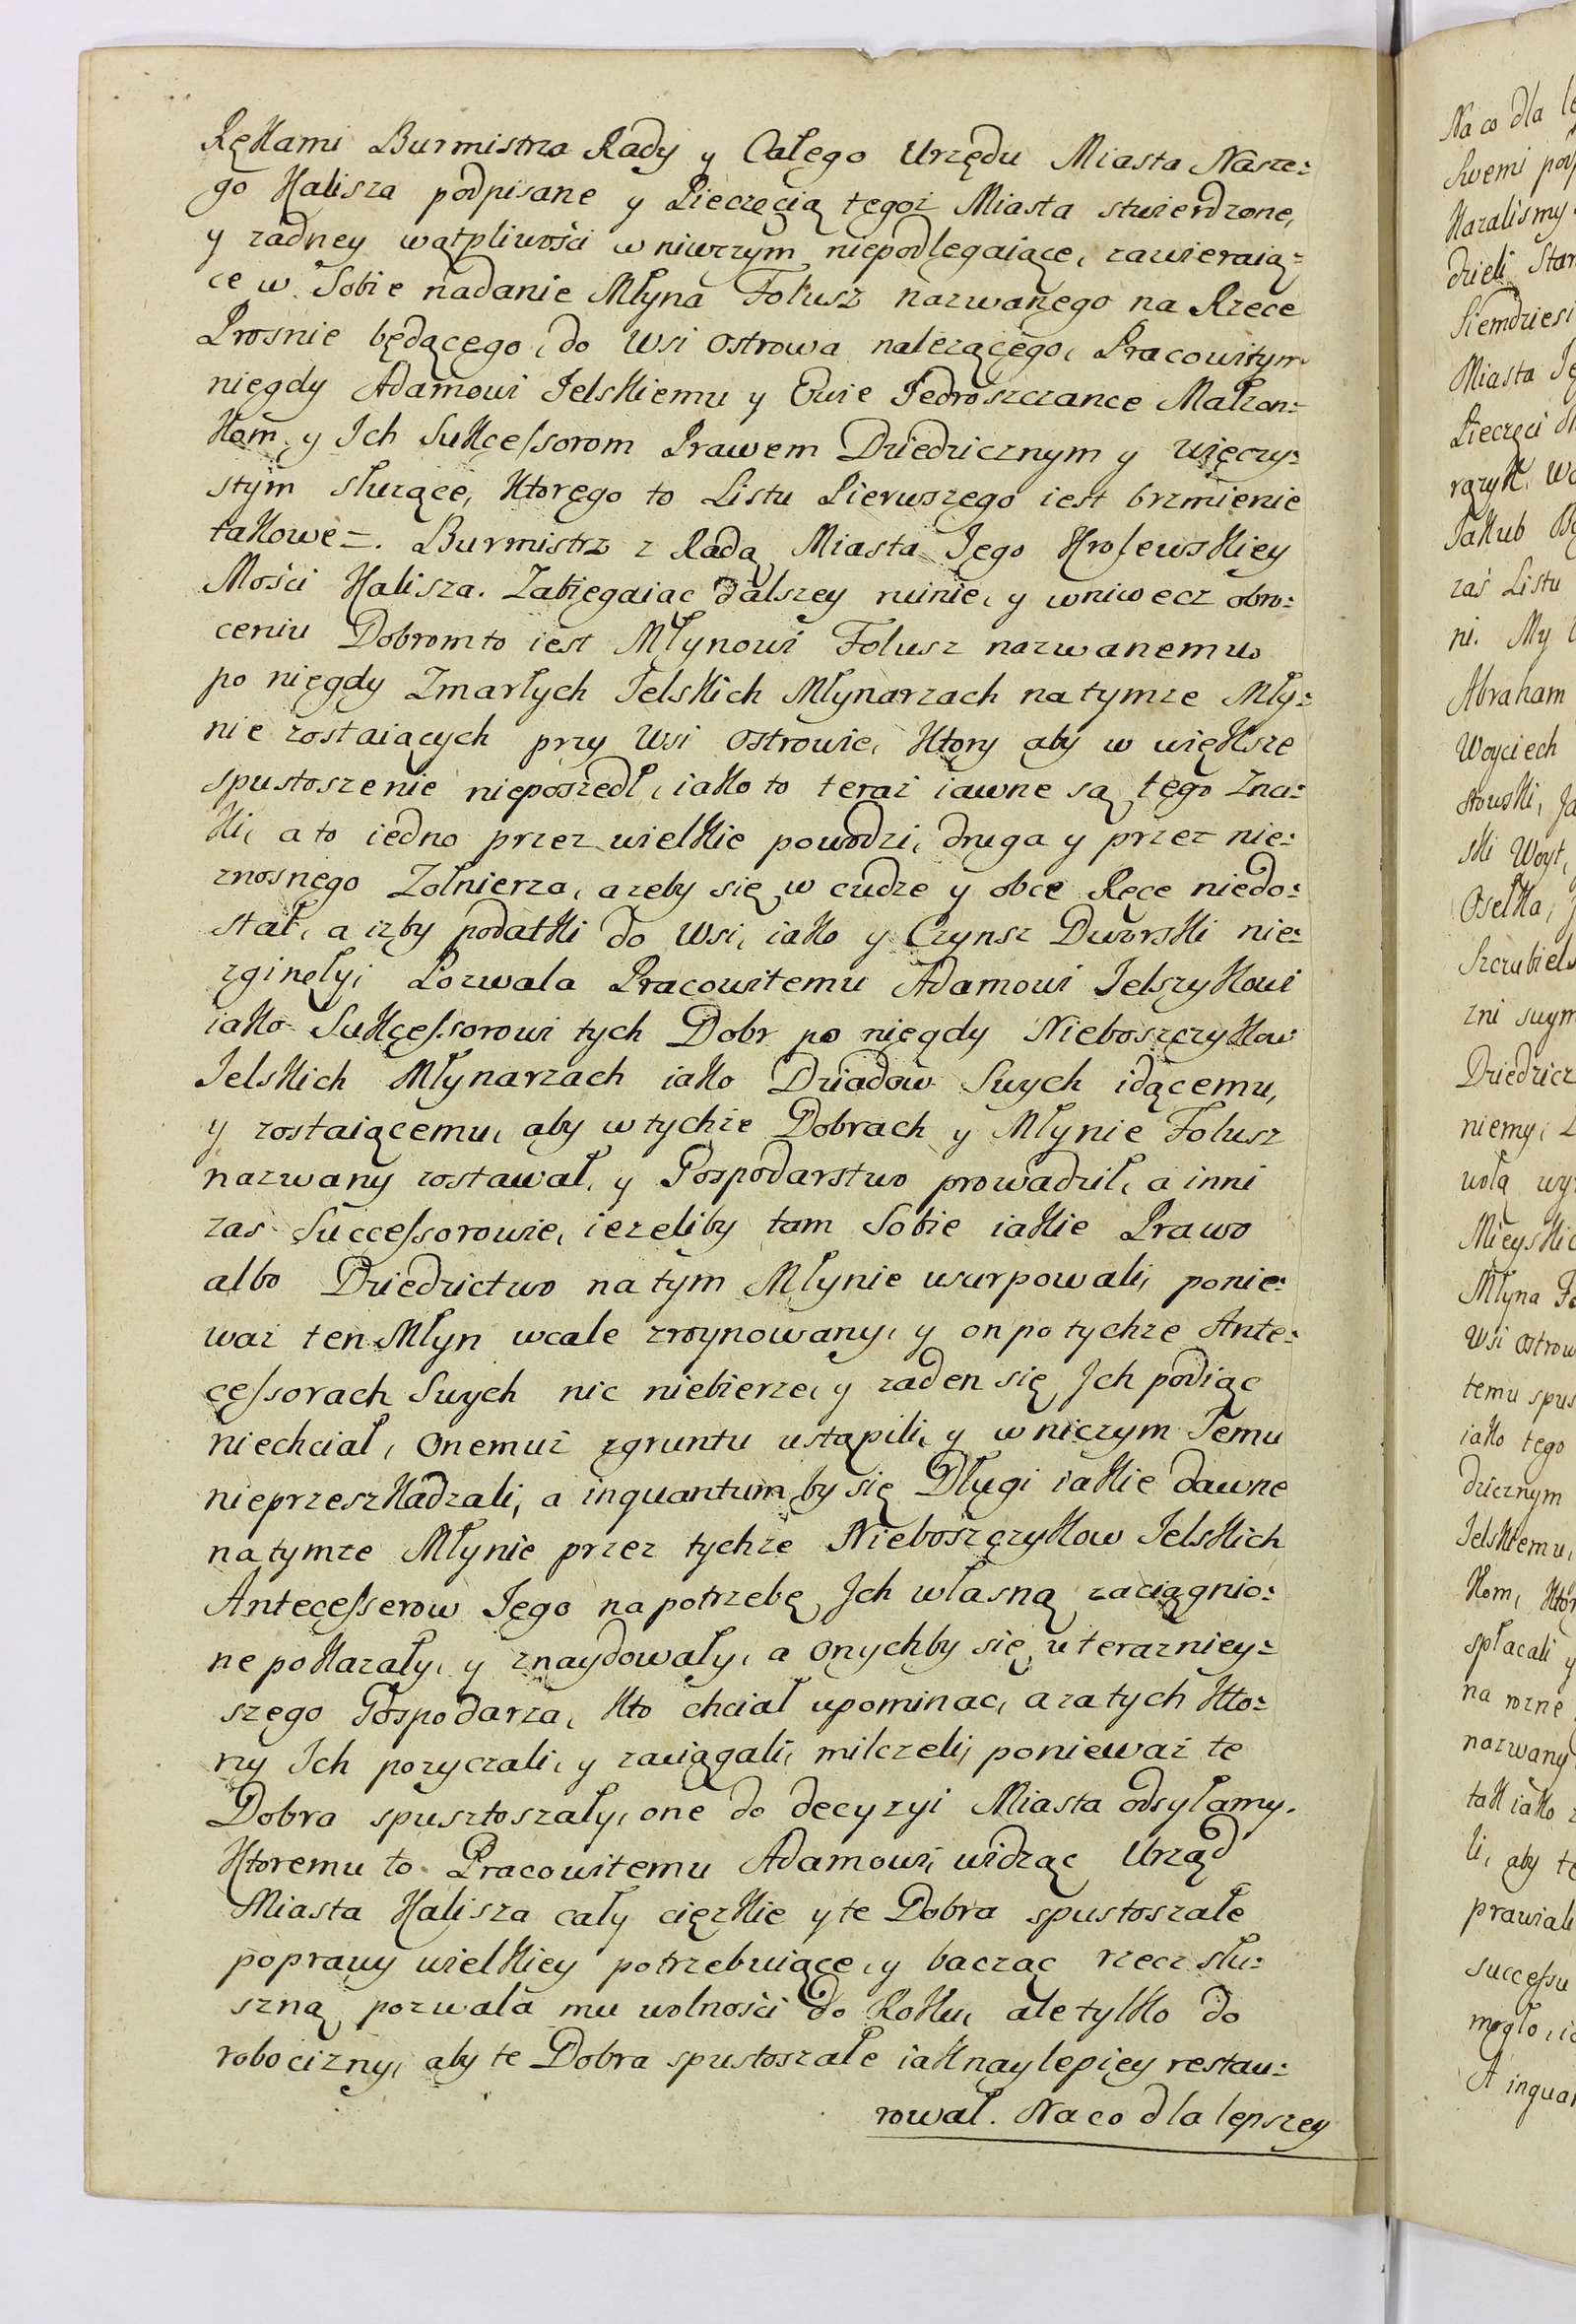 Rękami Burmistrza Rady y Całęgo Urzędu Miasta Nasze:
go Kalisza podpisane y Pieczęcią tegoż Miasta stwierdzone,
y zadney wątpliwości w niwczym niepodlegaiące, zawieraią:
ce w Sobie nadanie Młyna Folusz nazwanego na Rzece
Prosnie będącego, do Wsi Ostrowa nalezącęgo, Pracowitym
niegdy Adamowi Jelskiemu y Ewie Jedroszczance Małzon:
kom, y Ich Sukcessorom Prawem Dziedzicznym y więczy:
stym słuzące, ktoręgo to Listu Pierwszego iest brzmienie
takowe =. Burmistrz z Radą Miasta Jęgo Krolewskiey
Mości Kalisza. Zabięgaiac dalszey ruinie, y wniwecz obro:
ceniu Dobrom to iest Młynowi Folusz nazwanemu
po niegdy Zmarłych Jelskich Młynarzach na tymze Mły:
nie zostaiących przy Wsi Ostrowie, ktory aby w większe
spustoszenie nieposzedł, iako to teraż iawne są tęgo Zna:
ki, a to iedno przez wielkie powodzi, druga y przez nie:
znosnęgo Zołnierza, azeby się w cudze y obce Ręce niedo:
stał, a izby podatki do Wsi, iako y Czynsz Dworski nie:
zgineły, Pozwala Pracowitemu Adamowi Jelszykowi
iako Sukcęssorowi tych Dobr po niegdy Nieboszczykow
Jelskich Młynarzach iako Dziadow Swych idącemu,
y zostaiącemu, aby w tychże Dobrach y Młynie Folusz
nazwany zostawał, y Gospodarstwo prowadził, a inni
zas Successorowie, iezeliby tam Sobie iakie Prawo
albo Dziedzictwo na tym Młynie usurpowali, ponie:
waz ten Młyn wcale zroynowany, y on po tychze Ante:
cęssorach Swych nic niebierze, y zaden się Ich podiąc
niechciał, Onemuż zgruntu ustąpili, y w niczym Jemu
nieprzeszkadzali, a inquantum by się Długi iakie dawne
na tymze Młynie przez tychże Nieboszczykow Jelskich
Antecęsserow Jęgo na potrzebę Ich własną zaciągnio:
ne pokazały, y znaydowały, a Onychby się u terazniey:
szęgo Gospodarza, kto chciał upominac, a za tych kto:
rzy Ich pozyczali, y zaciągali, milczeli, ponieważ te
Dobra spusztoszały, one do decyzyi Miasta odsyłamy.
Ktoremu to Pracowitemu Adamowi, widząc Urząd
Miasta Kalisza cały cięzkie y te Dobra spustoszałe
poprawy wielkiey potrzebuiące, y bacząc rzecz słu:
szną pozwala mu wolności do Roku, ale tylko do
robocizny, aby te Dobra spustoszałe iak naylepięy restau:
rował. Na co dla lepszey
Na co dla
Swemi
Kazalismy
dzieli
Siemdziesi
Miasta
Pieczęci
Jakub
zaś Listu
ni. My
Abraham
Woyciech
ski Woyt,
Oselka,
zni
Dziedzicz
niemy,
wolą
Mieyskic
Młyna
Wsi Ostrow
temu
iako tego
dzicznym
Jelskiemu,
kom,
spłacali y
na rozne
nazwany
tak iako
li, aby
prawiali
mogło,
A inquan